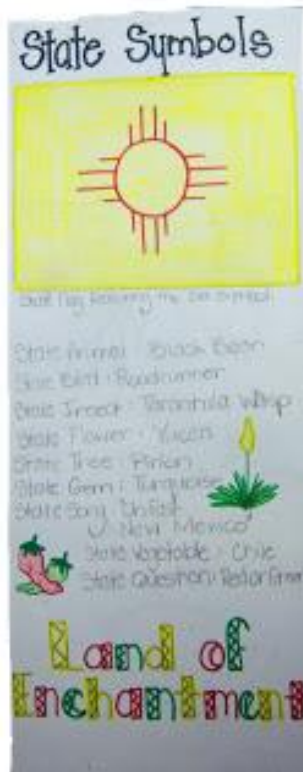 State Symbols
State Flag featuring the Sun Symbol
State Animal: Black Bear
State Bird: Roadrunner
State Insect: Tarantula Wasp
State Flower: Yucca
State Tree: Piñon
State Gem: Turquoise
State Song: Oh Fair
New Mexico
State Vegetable: Chile
State Question: Red or Green
Land of
Enchantment